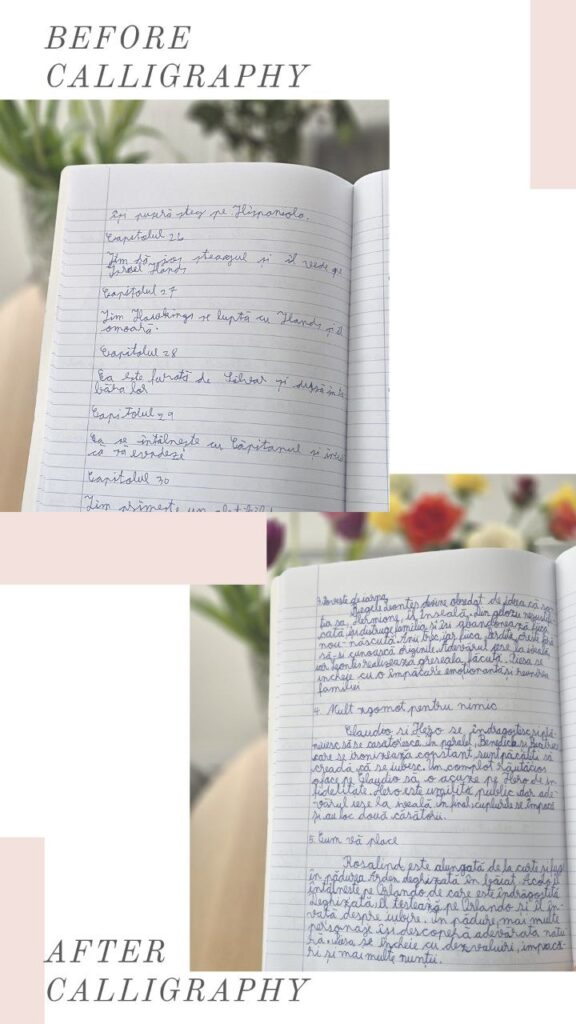 BEFORE
CALLIGRAPHY
își pusără steag pe Hispaniola.
Capitolul 26
Jim dă jos steagul și îl vede pe
Israel Hands
Capitolul 27
Jim Hawkings se luptă cu Hands și îl
omoară.
Capitolul 28
Ea este furată de Silver și dusă în ta
băra lor
Capitolul 29
Ea se întâlnește cu Căpitanul și
că să evadeze
Capitolul 30
Jim primește un
3. Poveste de iarnă
Regele Leontes devine obsedat de ideea că so
ția sa, Hermione, îl înșeală. Din gelozie
își distruge familia și își abandonează fiica
nou-născută. Anii trec, iar fiica, Perdita, crește fără
să-și cunoască originile. Adevărul iese la iveală,
iar Leontes realizează greșeala făcută. Piesa se
încheie cu o împăcare emoționantă și reunirea
familiei
4. Mult zgomot pentru nimic
Claudio și Hero se îndrăgostesc și plă
nuiesc să se căsătorească. În paralel, Benedick și Beatrice
care se ironizează constant, sunt păcăliți să
creadă că se iubesc. Un complot răutăcios
face pe Claudio să o acuze pe Hero de in
fidelitate. Hero este umilită public, dar ade
vărul iese la iveală. În final, cuplurile se împacă
și au loc două căsătorii.
5. Cum vă place
Rosalind este alungată de la curte și fuge
în pădurea Arden deghizată în băiat. Acolo îl
întâlnește pe Orlando de care este îndrăgostită.
Deghizată, îl testează pe Orlando și îl în
vață despre iubire. În pădure, mai multe
personaje își descoperă adevărata natu
ră. Piesa se încheie cu dezvăluiri, împăcă
ri și mai multe nunți.
AFTER
CALLIGRAPHY